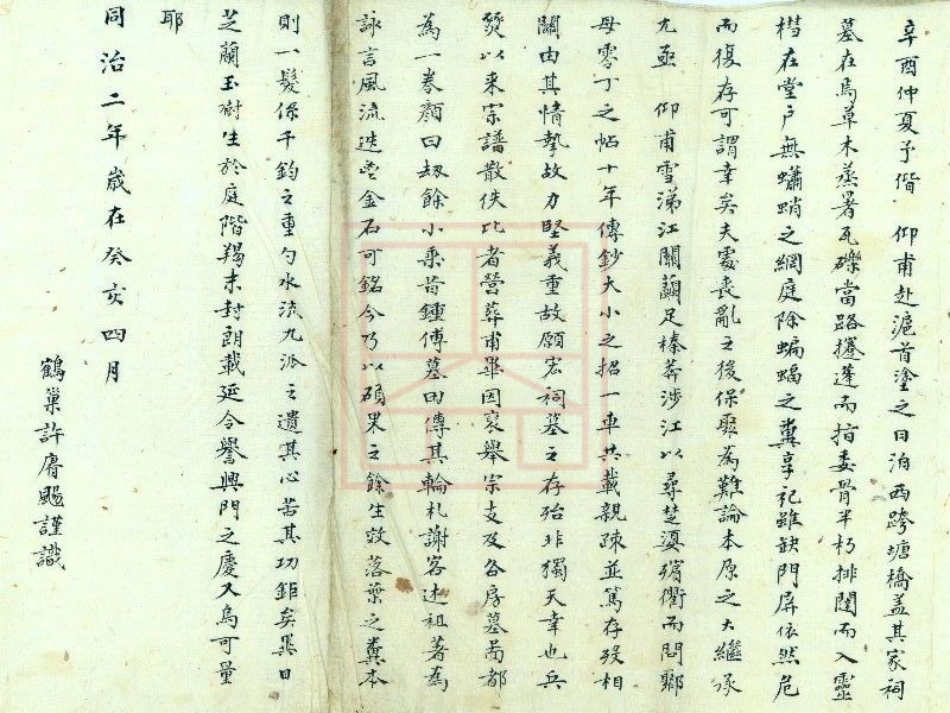 辛酉仲夏予偕 仰甫赴滬首塗之日泊西跨塘橋盖其家祠
墓在焉草木蒸署瓦礫當路攓蓬而指委骨半朽排闥而入靈
櫘在堂戶無蠨蛸之網庭除蝙蝠之糞享祀雖缺門屏依然危
而復存可謂幸矣夫處喪亂之後保聚為難論本原之大繼承
尤亟 仰甫雪涕江關繭足榛莽涉江以尋楚婆殯衢而問鄹
母零丁之帖十年傳鈔大小之招一車共載親疎並篤存歿相
關由其情摯故力堅義重故願宏祠墓之存殆非獨天幸也兵
燹以来宗譜散佚比者營葬甫畢因裒舉宗支及各房墓啚都
為一卷顏曰劫餘小乘昔鍾傅墓田傳其輪札謝客述祖著為
詠言風流迭壘金石可銘今乃以碩果之餘生效落葉之糞本
則一髮係千鈞之重勺水流九派之遺其心苦其功鉅矣異日
芝蘭玉樹生於庭階羯末封朗載延令譽興門之慶又烏可量
耶
同治二年歲在癸亥四月
鶴巢許賡颺謹識